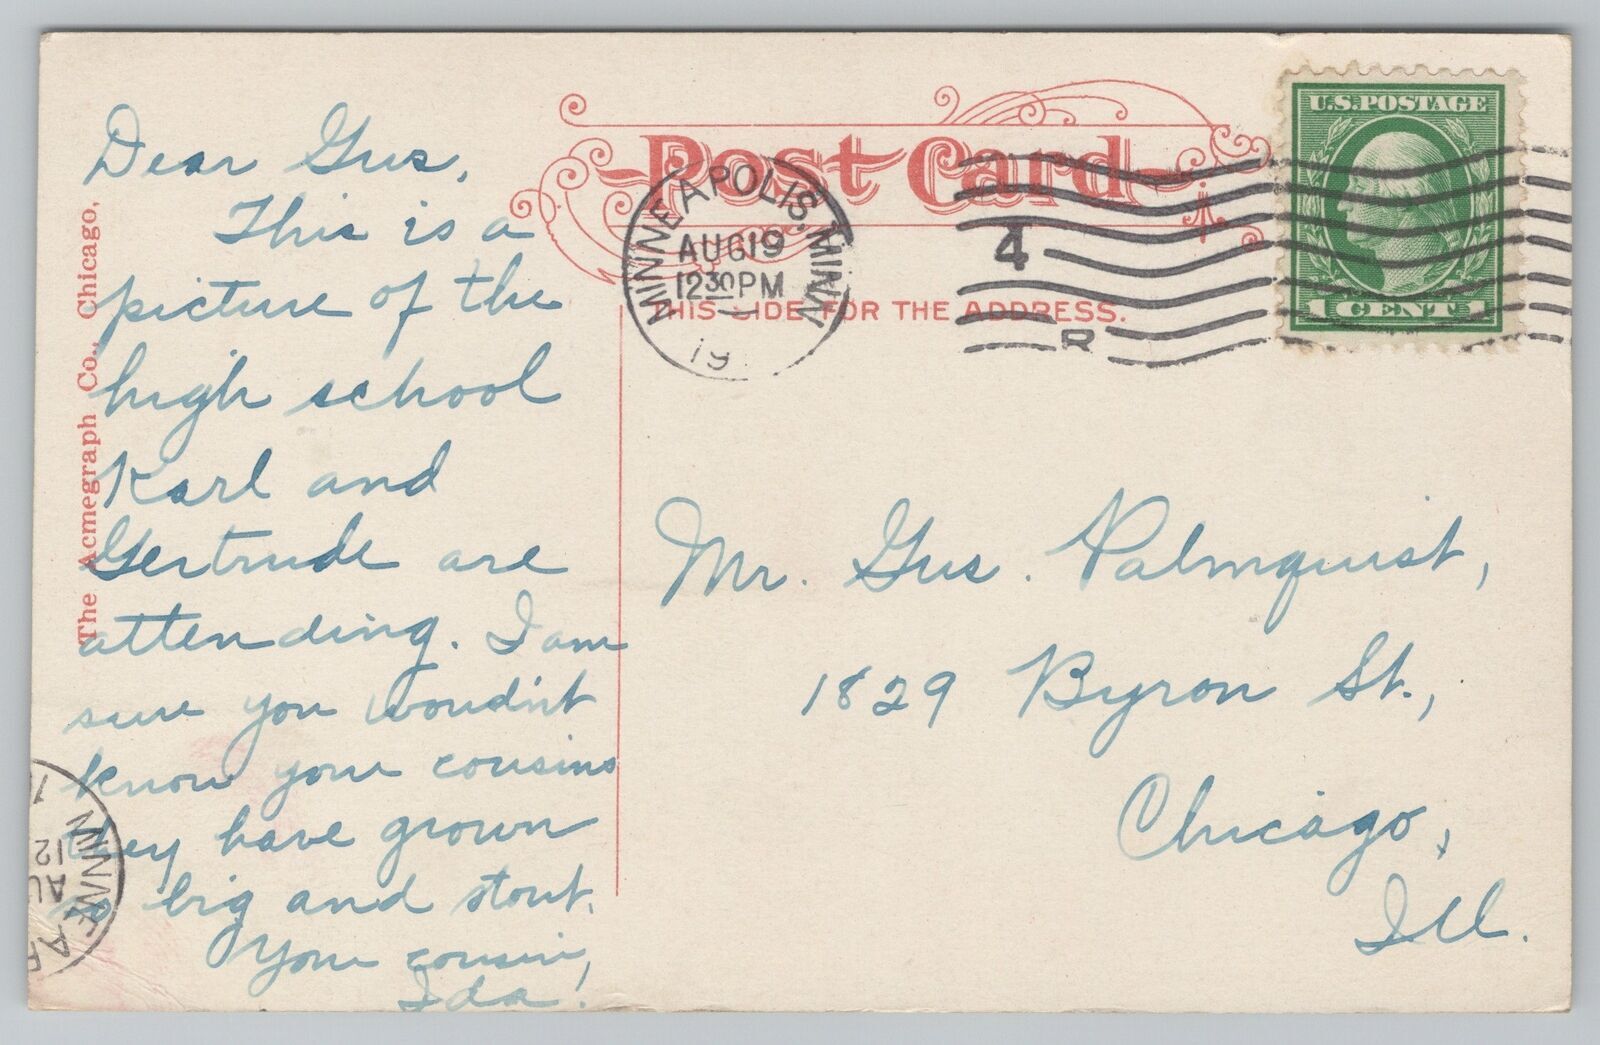 Dear Gus,
This is a
picture of the
high school
Karl and
Gertrude are
attending. I am
sure you woudn't
know your cousins
they have grown
so big and stout.
Your cousin,
Ida!
The Acmegraph Co., Chicago,
Post Card
THIS SIDE FOR THE ADDRESS.
MINNEAPOLIS, MINN.
AUG 19
12 30 PM
19
4
R
U.S. POSTAGE
1 CENT 1
Mr. Gus. Palmquist,
1829 Byron St.,
Chicago,
Ill.
MINNEAP
AU
12
1